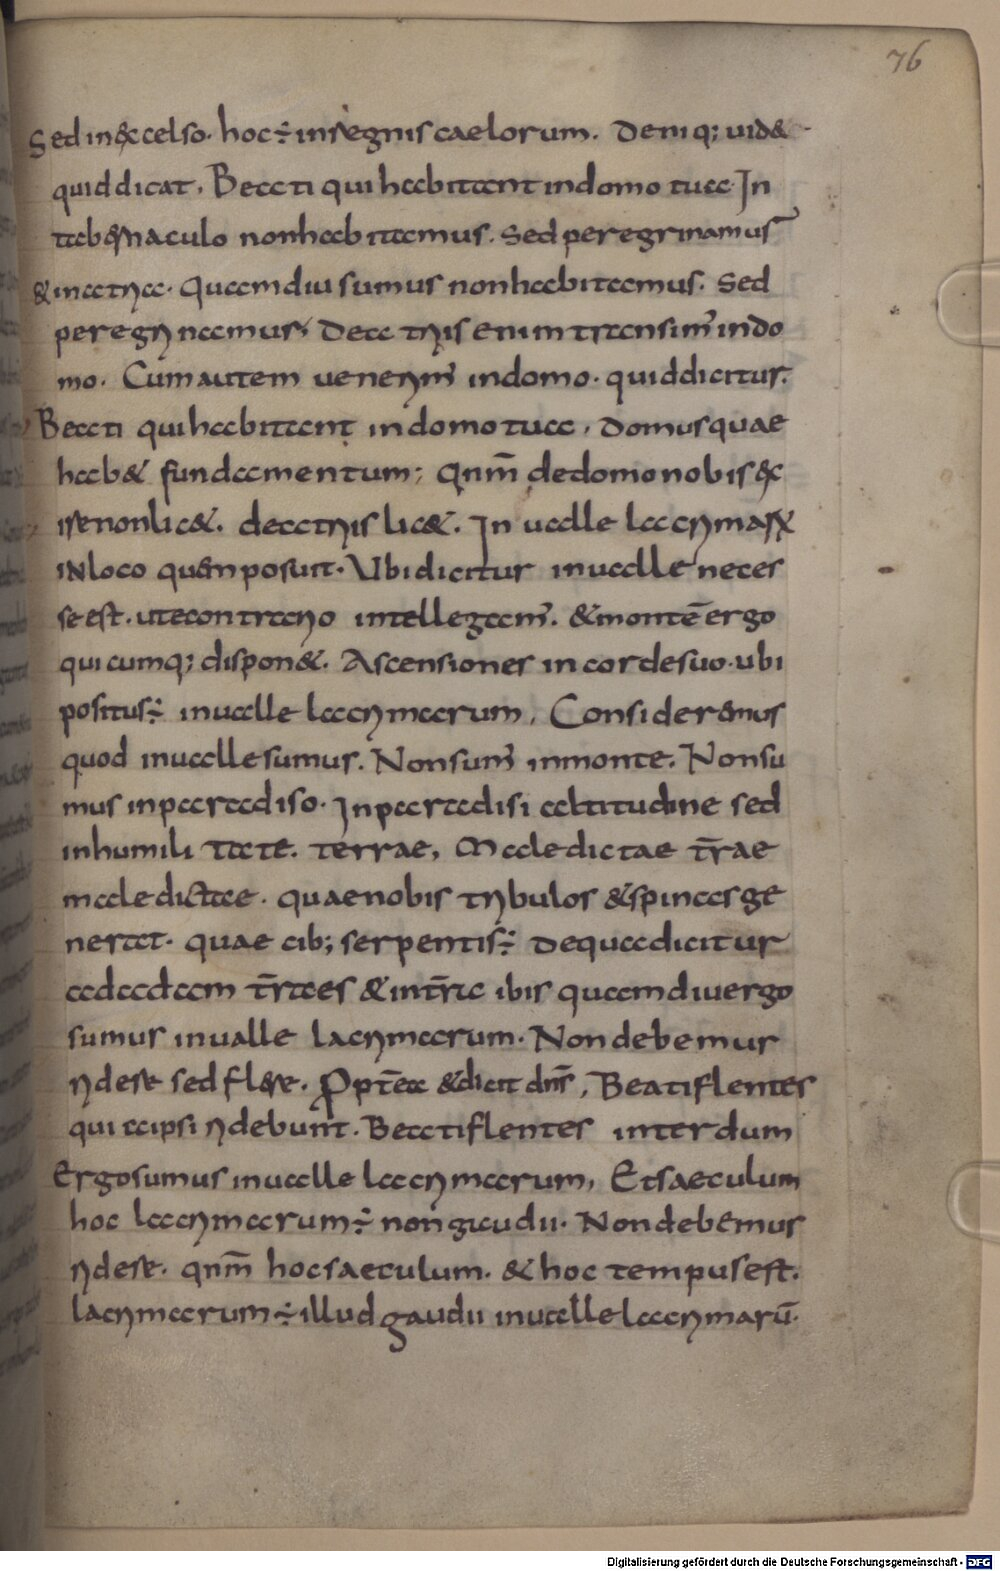 76
Sed in excelso. hoc ÷ in regnis caelorum. Deniq; uid&
quid dicat. Beati qui habitant in domo tua. In
tabernaculo non habitamus. Sed peregrinamus
& in atria. Quamdiu sumus non habitamus. Sed
peregrinamus; De atriis enim transim̅ in do
mo. Cum autem uenerim̅ in domo. quid dicitur.
Beati qui habitant in domo tua. Domus quae
hab& fundamentum; Qnm̅ de domo nobis ex
ire non lic&. de atriis lic&. In ualle lacrimarx
in loco quem posuit. Ubi dicitur in ualle neces
se est. ut e contrario intellegam̅. & montē ergo
quicumq; dispon&. Ascensiones in corde suo. ubi
positus ÷ in ualle lacrimarum. Consideremus
quod in ualle sumus. Non sum̅ in monte. Non su
mus in paradiso. In paradisi altitudine sed
in humilitate. terrae, Maledictae tr̅ae
maledictae. quae nobis tribulos & spinas ge
nerat. quae cib; serpentis ÷ De qua dicitur
ad adam tr̅a es & in tr̅a ibis quamdiu ergo
sumus in ualle lacrimarum. Non debemus
ridere sed flere. Propt̅ea & dicit dn̅s, Beati flentes
quia ipsi ridebunt. Beati flentes interdum
Ergo sumus in ualle lacrimarum, Et saeculum
hoc lacrimarum ÷ non gaudii. Non debemus
ridere. qnm̅ hoc saeculum. & hoc tempus est.
lacrimarum ÷ illud gaudii in ualle lacrimarū.
Digitalisierung gefördert durch die Deutsche Forschungsgemeinschaft - DFG